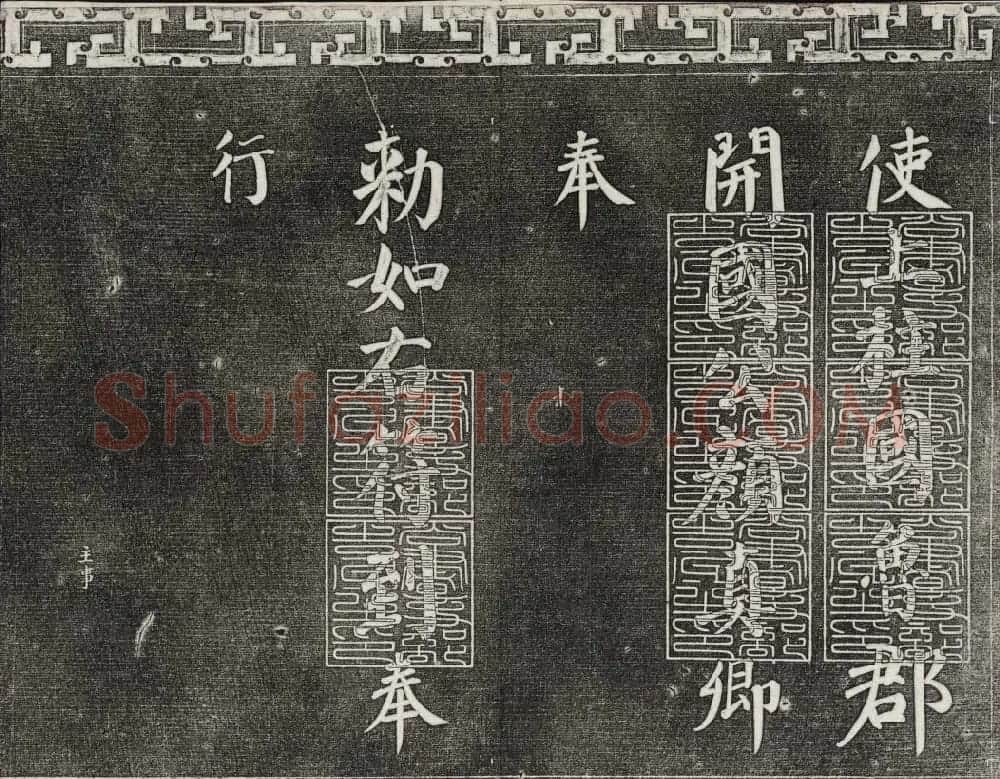 使上柱國魯郡
開國公顏真卿
奉
勑如右符到奉
行
主事
Shufaziliao.COM